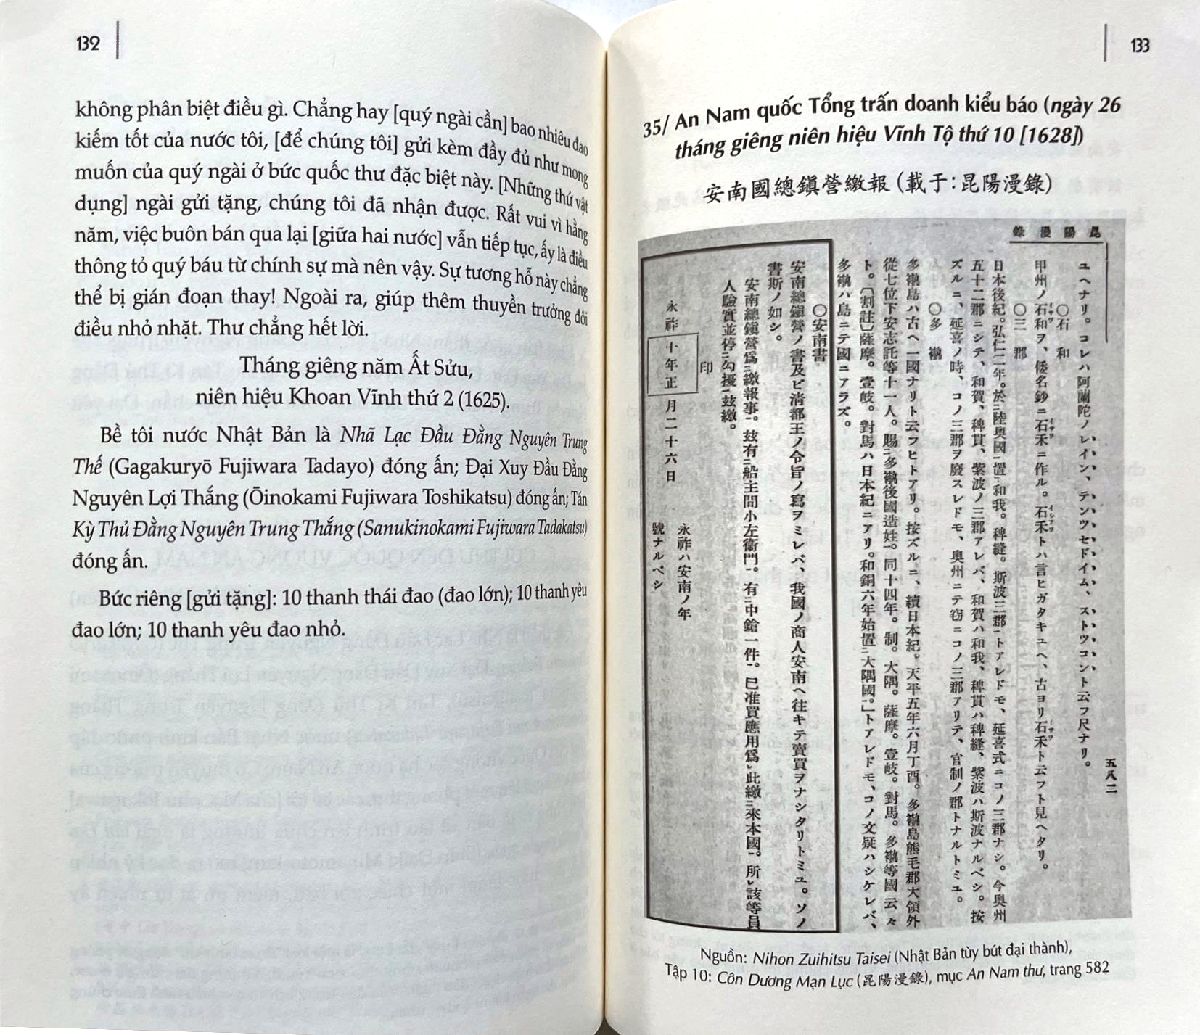 132
không phân biệt điều gì. Chẳng hay [quý ngài cần] bao nhiêu đao
kiếm tốt của nước tôi, [để chúng tôi] gửi kèm đầy đủ như mong
muốn của quý ngài ở bức quốc thư đặc biệt này. [Những thứ vật
dụng] ngài gửi tặng, chúng tôi đã nhận được. Rất vui vì hằng
năm, việc buôn bán qua lại [giữa hai nước] vẫn tiếp tục, ấy là điều
thông tỏ quý báu từ chính sự mà nên vậy. Sự tương hỗ này chẳng
thể bị gián đoạn thay! Ngoài ra, giúp thêm thuyền trưởng đôi
điều nhỏ nhặt. Thư chẳng hết lời.
Tháng giêng năm Ất Sửu,
niên hiệu Khoan Vĩnh thứ 2 (1625).
Bề tôi nước Nhật Bản là Nhã Lạc Đầu Đằng Nguyên Trung
Thế (Gagakuryō Fujiwara Tadayo) đóng ấn; Đại Xuy Đầu Đằng
Nguyên Lợi Thắng (Ōinokami Fujiwara Toshikatsu) đóng ấn; Tán
Kỳ Thủ Đằng Nguyên Trung Thắng (Sanukinokami Fujiwara Tadakatsu)
đóng ấn.
Bức riêng [gửi tặng]: 10 thanh thái đao (đao lớn); 10 thanh yêu
đao lớn; 10 thanh yêu đao nhỏ.
133
35/ An Nam quốc Tổng trấn doanh kiểu báo (ngày 26
tháng giêng niên hiệu Vĩnh Tộ thứ 10 [1628])
安南國總鎮營繳報 (載于:昆陽漫錄)
昆陽漫錄
五八二
ユヘナリ。コレハ阿蘭陀ノレイン、テンツセドイム、ストツコント云フ尺ナリ。
〇石和
甲州ノ石和ヲ、倭名鈔ニ石禾ニ作ル。石禾トハ言ヒガタキユヘ、古ヨリ石禾ト云フト見ヘタリ。
〇三郡
日本後紀。弘仁二年。於陸奥國置和我。稗縫。斯波三郡トアレドモ、延喜式ニコノ三郡ナシ。今奥州
五十二郡ニシテ、和賀、稗貫、紫波ノ三郡アレバ、和賀ハ和我、稗貫ハ稗縫、紫波ハ斯波ナルベシ。按
ズルニ、延喜ノ時、コノ三郡ヲ廢スレドモ、奥州ニテ窃ニコノ三郡アリテ、官制ノ郡トナルトミユ。
〇多褹
多褹島ハ古ヘ一國ナリト云フヒトアリ。按ズルニ、續日本紀。天平五年六月丁酉。多褹島熊毛郡大領外
從七位下安志託等十一人。賜多褹後國造姓。同十四年。制。大隅。薩摩。壹岐。對馬。多褹等國云々
ト。〔割註〕薩摩。壹岐。對馬ハ日本紀ニアリ。和銅六年始置大隅國。」トアレドモ、コノ文疑ハシケレバ、
多褹ハ島ニテ國ニアラズ。
〇安南書
安南總鎮營ノ書及ビ清都王ノ令旨ノ寫ヲミレバ、我國ノ商人安南ヘ往キテ賣買ヲナシタリトミユ。ソノ
書斯ノ如シ。
安南總鎮營爲繳報事。玆有船主間小左衛門。有中鎗一件。已准買應用爲此繳來本國。所該等員
人驗實並停勾擾玆繳。
印
永祚十年正月二十六日
永祚ハ安南ノ年
號ナルベシ
Nguồn: Nihon Zuihitsu Taisei (Nhật Bản tùy bút đại thành),
Tập 10: Côn Dương Mạn Lục (昆陽漫錄), mục An Nam thư, trang 582